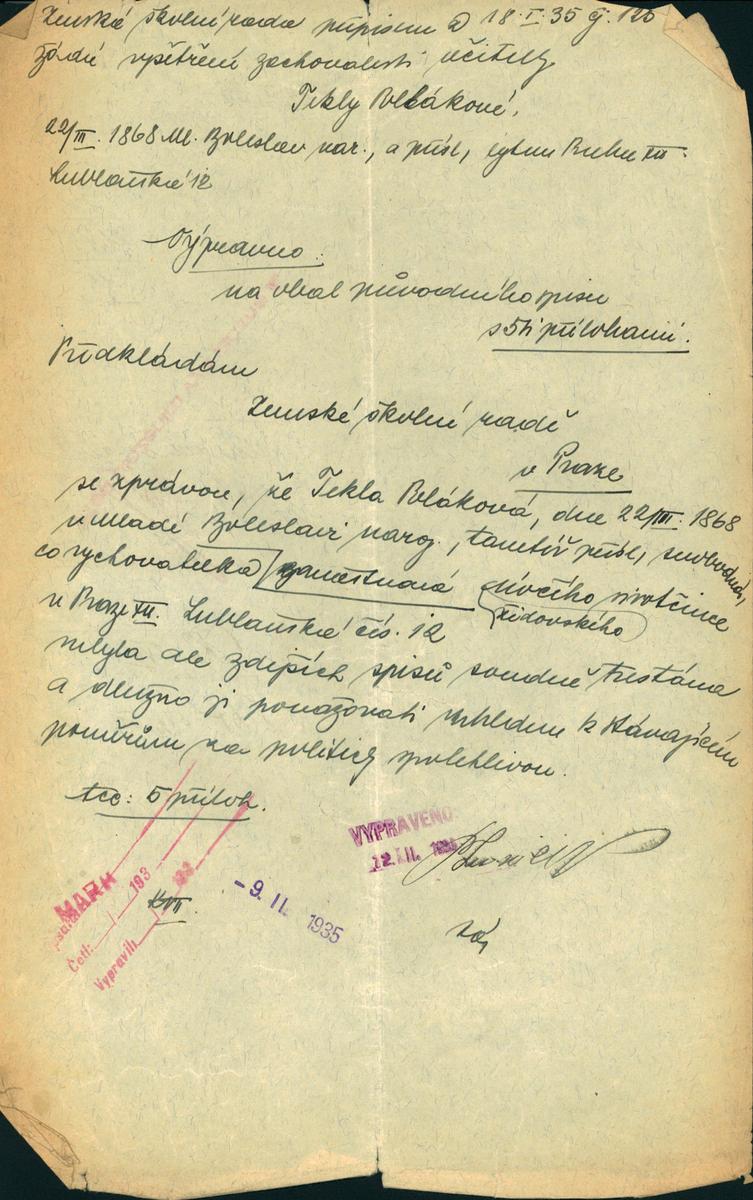 Zemská školní rada přípisem z 18.I.35 čj. 126
žádá vyšetření zachovalosti učitelky
Tekly Polákové,
22/III. 1868 Ml. Boleslav nar., a přísl., bytem Praha XII.
Lublaňská 12
Výpravno:
na obal původního spisu
s 5ti přílohami.
Předkládám
Zemské školní radě
v Praze
se zprávou, že Tekla Poláková, dne 22/III. 1868
v Mladé Boleslavi naroz., tamtéž přísl., svobodná,
co vychovatelka zaměstnaná dívčího sirotčince
židovského
v Praze XII. Lublaňská čís. 12
nebyla dle zdejších spisů soudně trestána
a dlužno ji považovati vzhledem k stávajícím
poměrům za politicky spolehlivou.
5 příloh.
VYPRAVENO
12. II. 1935
MARH
193
Četl:
Vypravil:
XVII.
-9. II. 1935